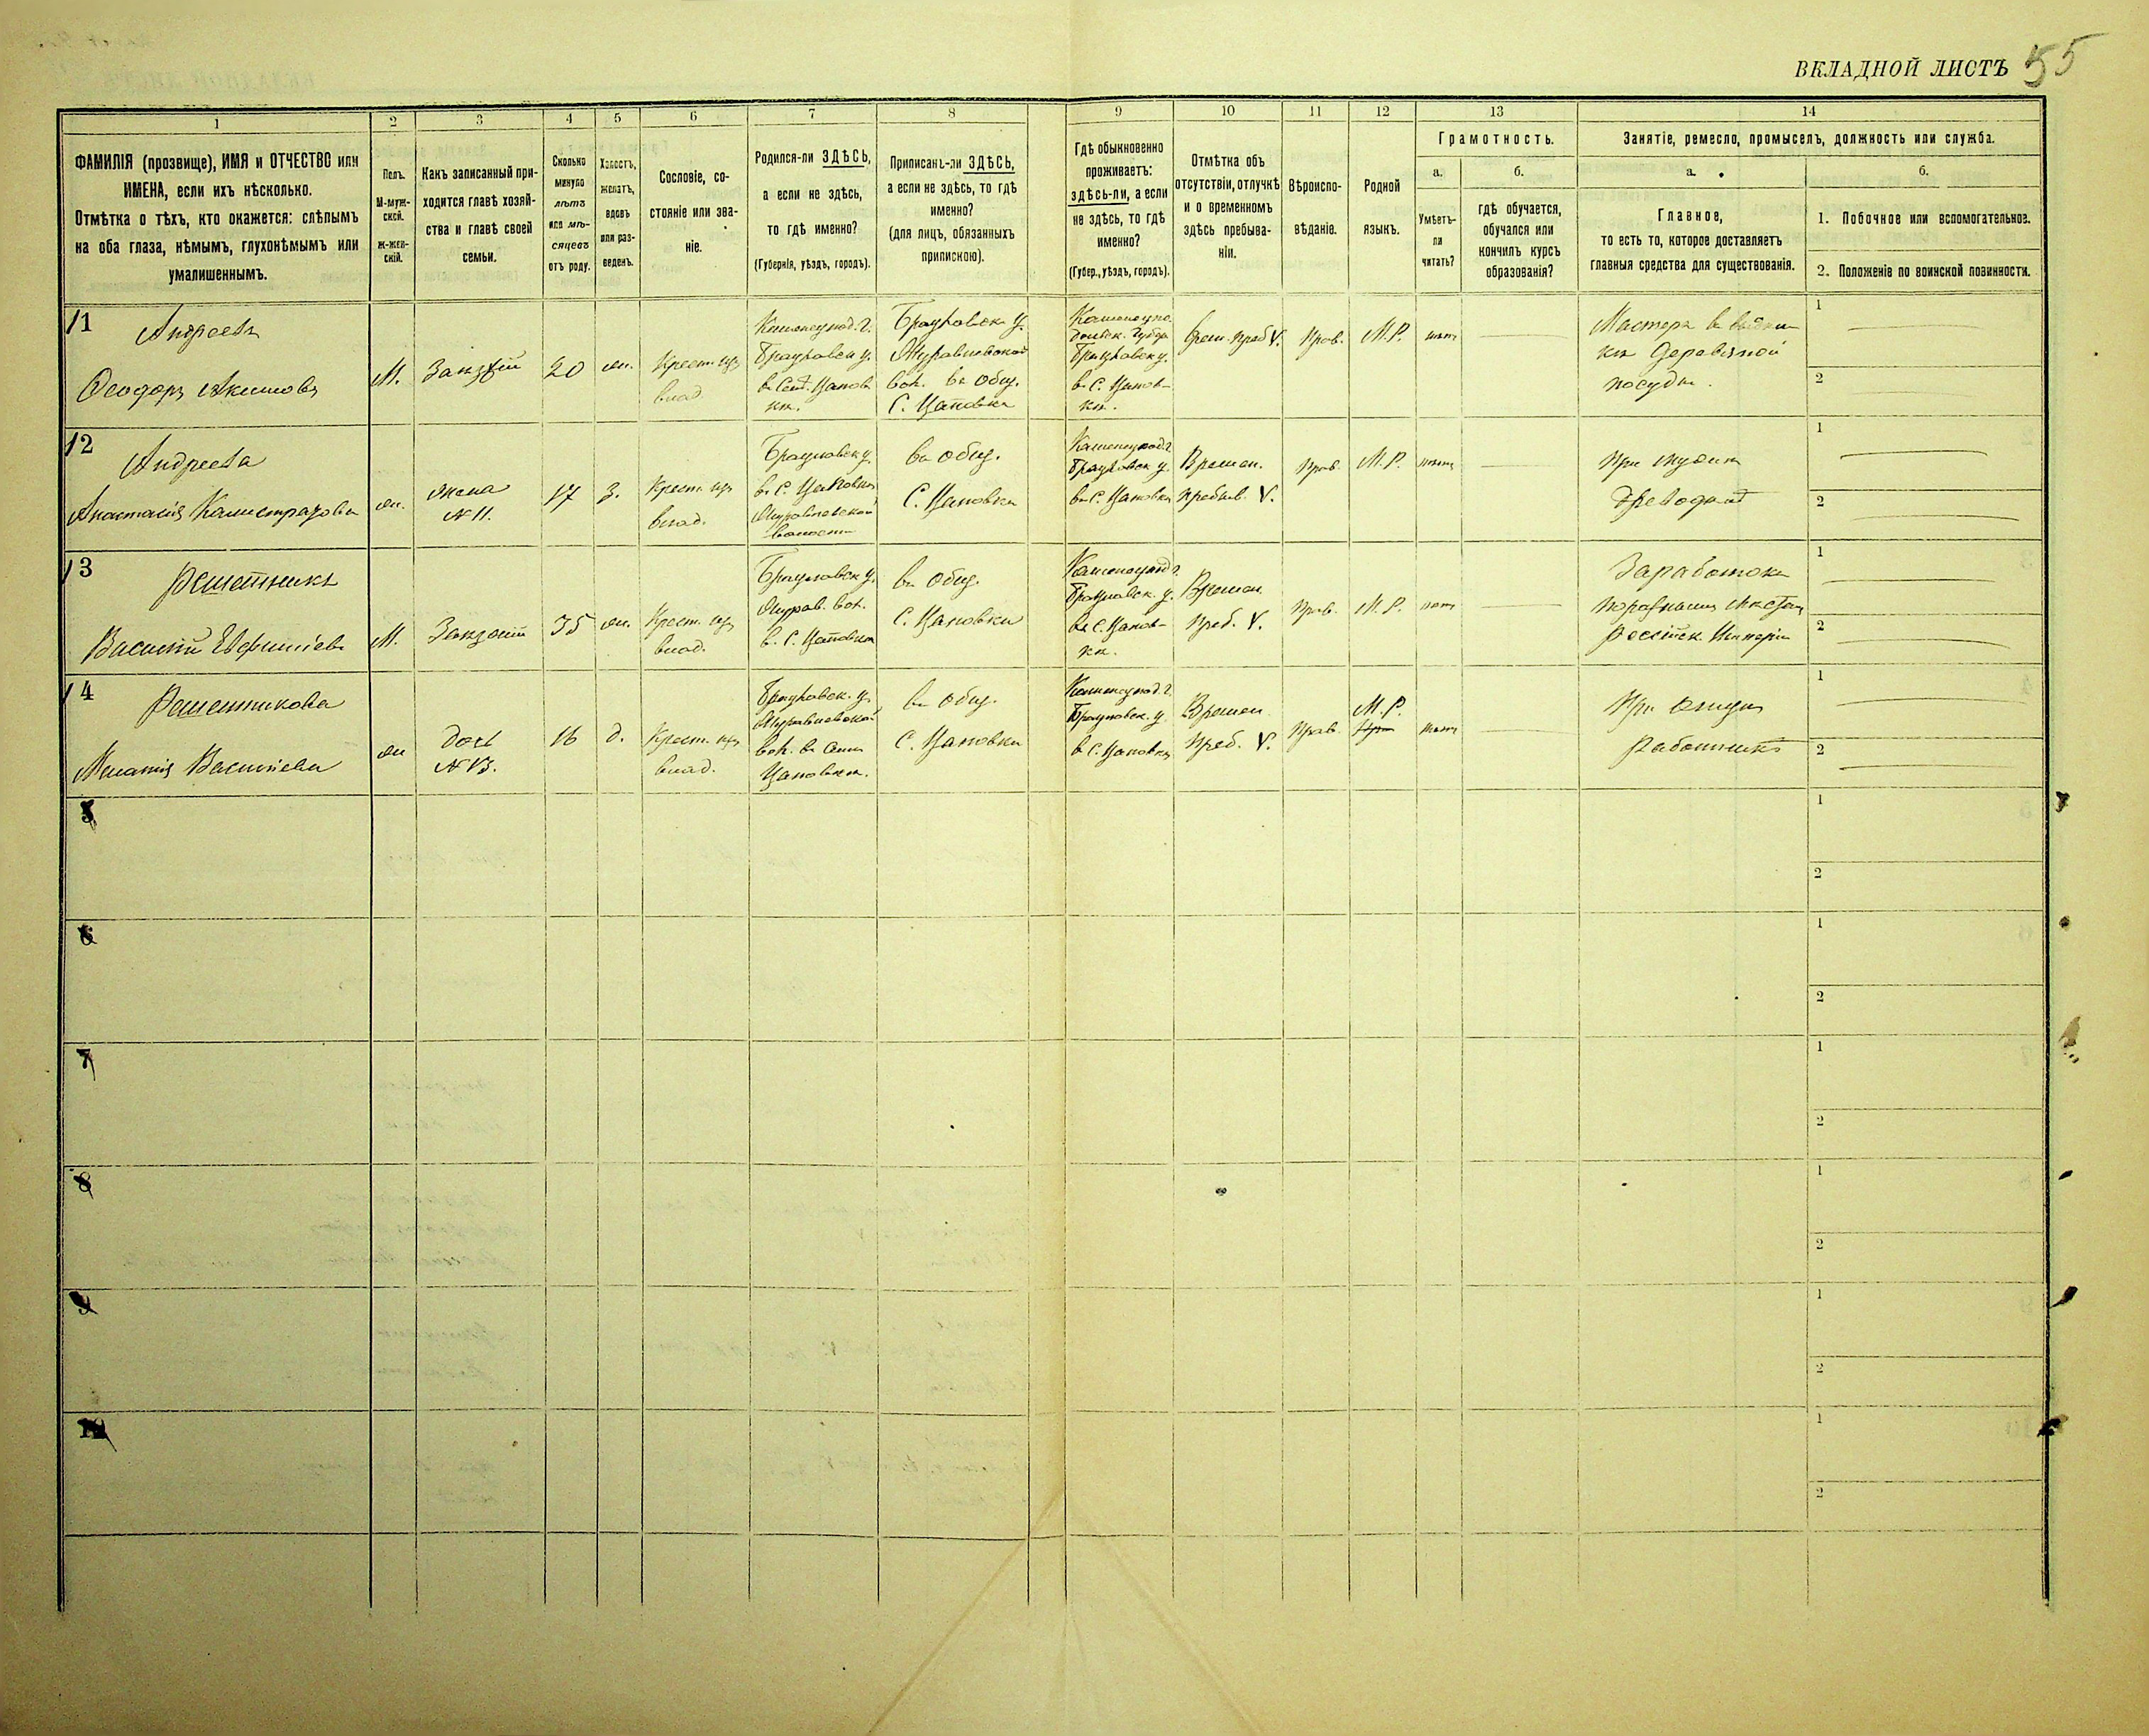 ВКЛАДНОЙ ЛИСТЪ 55
1 2 3 4 5 6 7 8 9 10 11 12 13 14
ФАМИЛІЯ (прозвище), ИМЯ и ОТЧЕСТВО или
ИМЕНА, если ихъ нѣсколько.
Отмѣтка о тѣхъ, кто окажется: слѣпымъ
на оба глаза, нѣмымъ, глухонѣмымъ или
умалишеннымъ.
Полъ.
М-муж-
ской.
ж-жен-
скій.
Какъ записанный при-
ходится главѣ хозяй-
ства и главѣ своей
семьи.
Сколько
минуло
лѣтъ
или мѣ-
сяцевъ
отъ роду.
Холостъ,
женатъ,
вдовъ
или раз-
веденъ.
Сословіе, со-
стояніе или зва-
ніе.
Родился-ли ЗДѢСЬ,
а если не здѣсь,
то гдѣ именно?
(Губернія, уѣздъ, городъ).
Приписанъ-ли ЗДѢСЬ,
а если не здѣсь, то гдѣ
именно?
(для лицъ, обязанныхъ
припискою).
Гдѣ обыкновенно
проживаетъ:
здѣсь-ли, а если
не здѣсь, то гдѣ
именно?
(Губер., уѣздъ, городъ).
Отмѣтка объ
отсутствіи, отлучкѣ
и о временномъ
здѣсь пребыва-
ніи.
Вѣроиспо-
вѣданіе.
Родной
языкъ.
Грамотность.
а.
Умѣетъ-
ли
читать?
б.
гдѣ обучается,
обучался или
кончилъ курсъ
образованія?
Занятіе, ремесло, промыселъ, должность или служба.
а.
Главное,
то есть то, которое доставляетъ
главныя средства для существованія.
б.
1. Побочное или вспомогательное.
2. Положеніе по воинской повинности.
11
Андреевъ
Ѳеодоръ Акимовъ
М.
20
жн.
Крест.
влад.
Брацлавск у.
кн.
Брацлавск у.
Журавлевской
вол. въ общ.
С. Цаповка
Брацлавск у.
в С. Цапов-
кѣ.
Врем. преб V.
Прав.
М.Р.
нѣтъ
Мастеръ
деревяной
посуды.
1
2
12
Андреева
Анастасія Калистратова
жн.
жена
№ 11.
17
З.
Крест.
влад.
Брацлавск у.
в С. Цаповки
Журавлевской
волости
въ общ.
С. Цаповки
Каменецпод. г
Брацлавск у.
в С. Цаповкѣ
Времен.
пребыв. V.
Прав.
М.Р.
нѣтъ
При мужѣ
1
2
13
Решетникъ
Василій Евфиміевъ
М.
35
жн.
Крест.
влад.
Брацлавск у.
Журав. вол.
в. С. Цаповка
въ общ.
С. Цаповки
Каменецпод г.
Брацлавск. у.
въ С. Цапов-
кѣ.
Времен
преб. V.
Прав.
М.Р.
нѣтъ
Заработокъ
Россійск Имперіи
1
2
14
Решетникова
Василіева
жн
дочь
№ 13.
16
д.
Крест.
влад.
Брацлавск. у.
Журавлевской
вол. въ
Цаповки.
въ общ.
С. Цаповки
Каменецпод. г.
Брацлавск. у.
в С. Цаповкѣ
Времен
преб. V.
Прав.
М.Р.
нѣтъ
При отцѣ
работникѣ
1
2
5
1
2
6
1
2
7
1
2
8
1
2
9
1
2
10
1
2